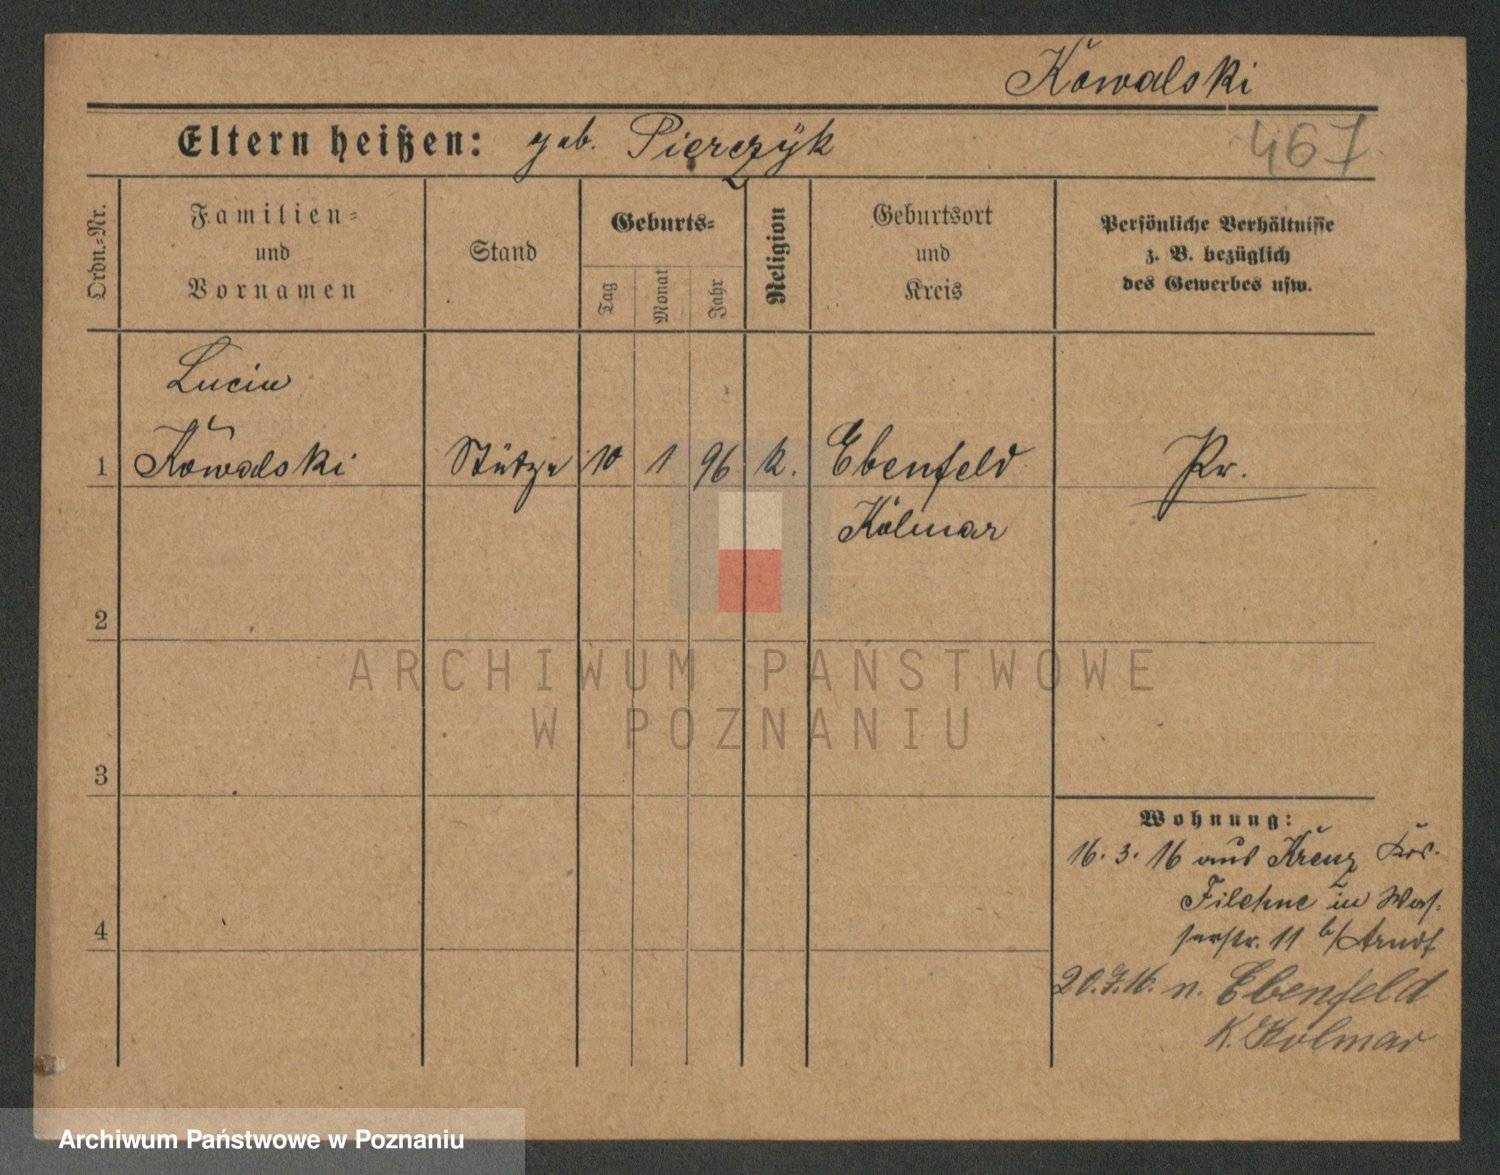 Kowalski
Eltern heißen: geb. Pierczÿk
467
Ordn.=Nr.
Familien=
und
Vornamen
Stand
Geburts=
Tag
Monat
Jahr
Religion
Geburtsort
und
Kreis
Persönliche Verhältnisse
z. B. bezüglich
des Gewerbes usw.
Lucia
1 Kowalski Stütze 10 1 96 k. Ebenfeld Pr.
Kolmar
2
ARCHIWUM PAŃSTWOWE
W POZNANIU
3
Wohnung:
16. 3. 16 aus Kreuz Krs.
Filehne in Was-
4
serstr. 11 b/Arndt
20.7.16. n. Ebenfeld
K. Kolmar
Archiwum Państwowe w Poznaniu